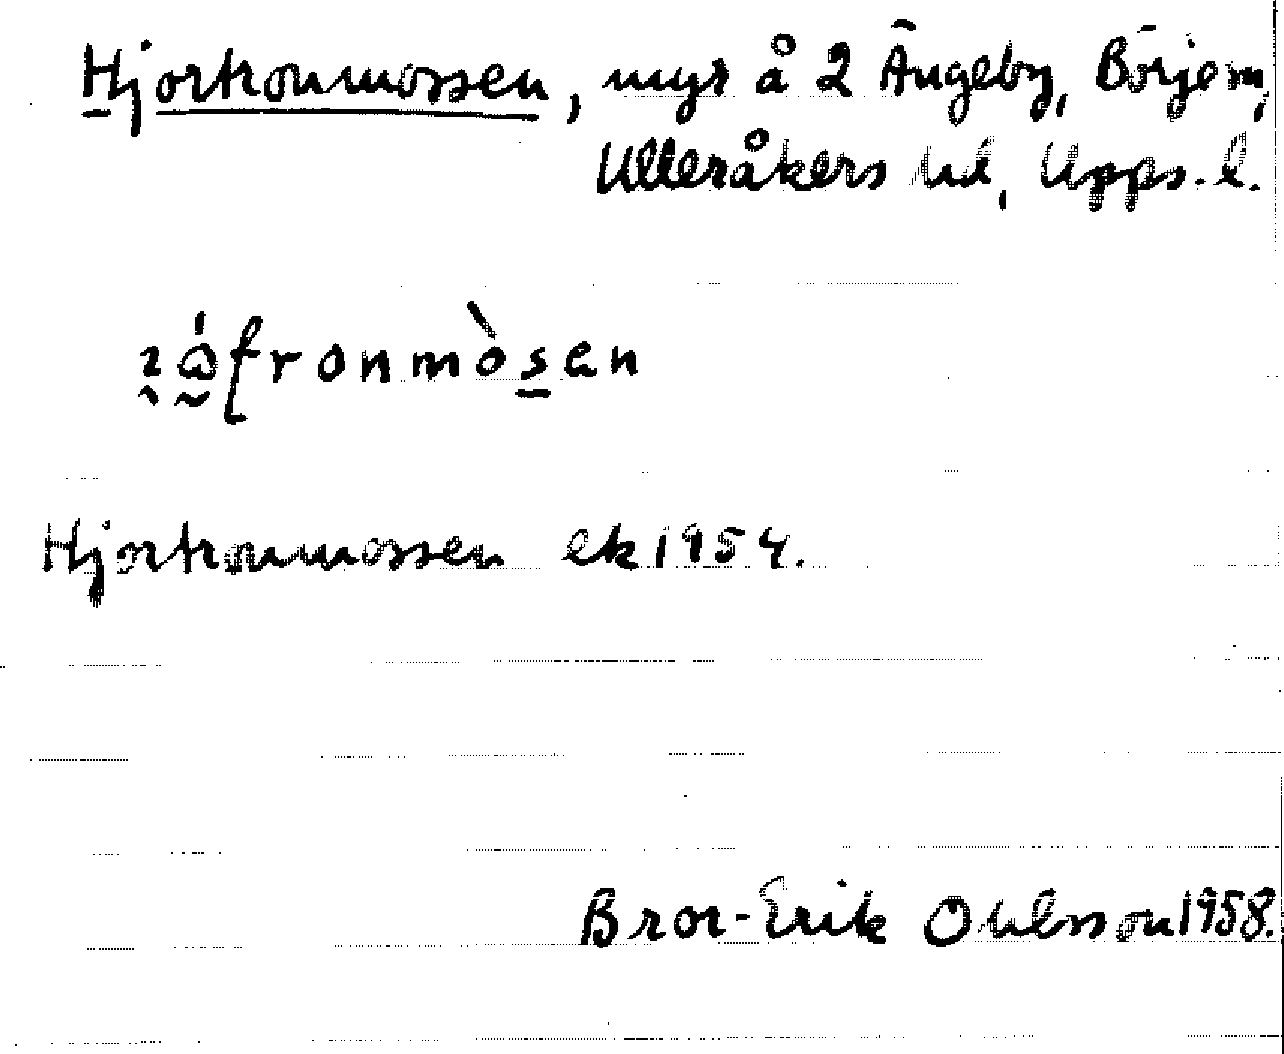 Hjortronmossen, myr å 2 Ängeby, Börje sn,
Ulleråkers hd, Upps. l.
Hjortronmossen ek 1954.
Bror-Erik Ohlsson 1958.